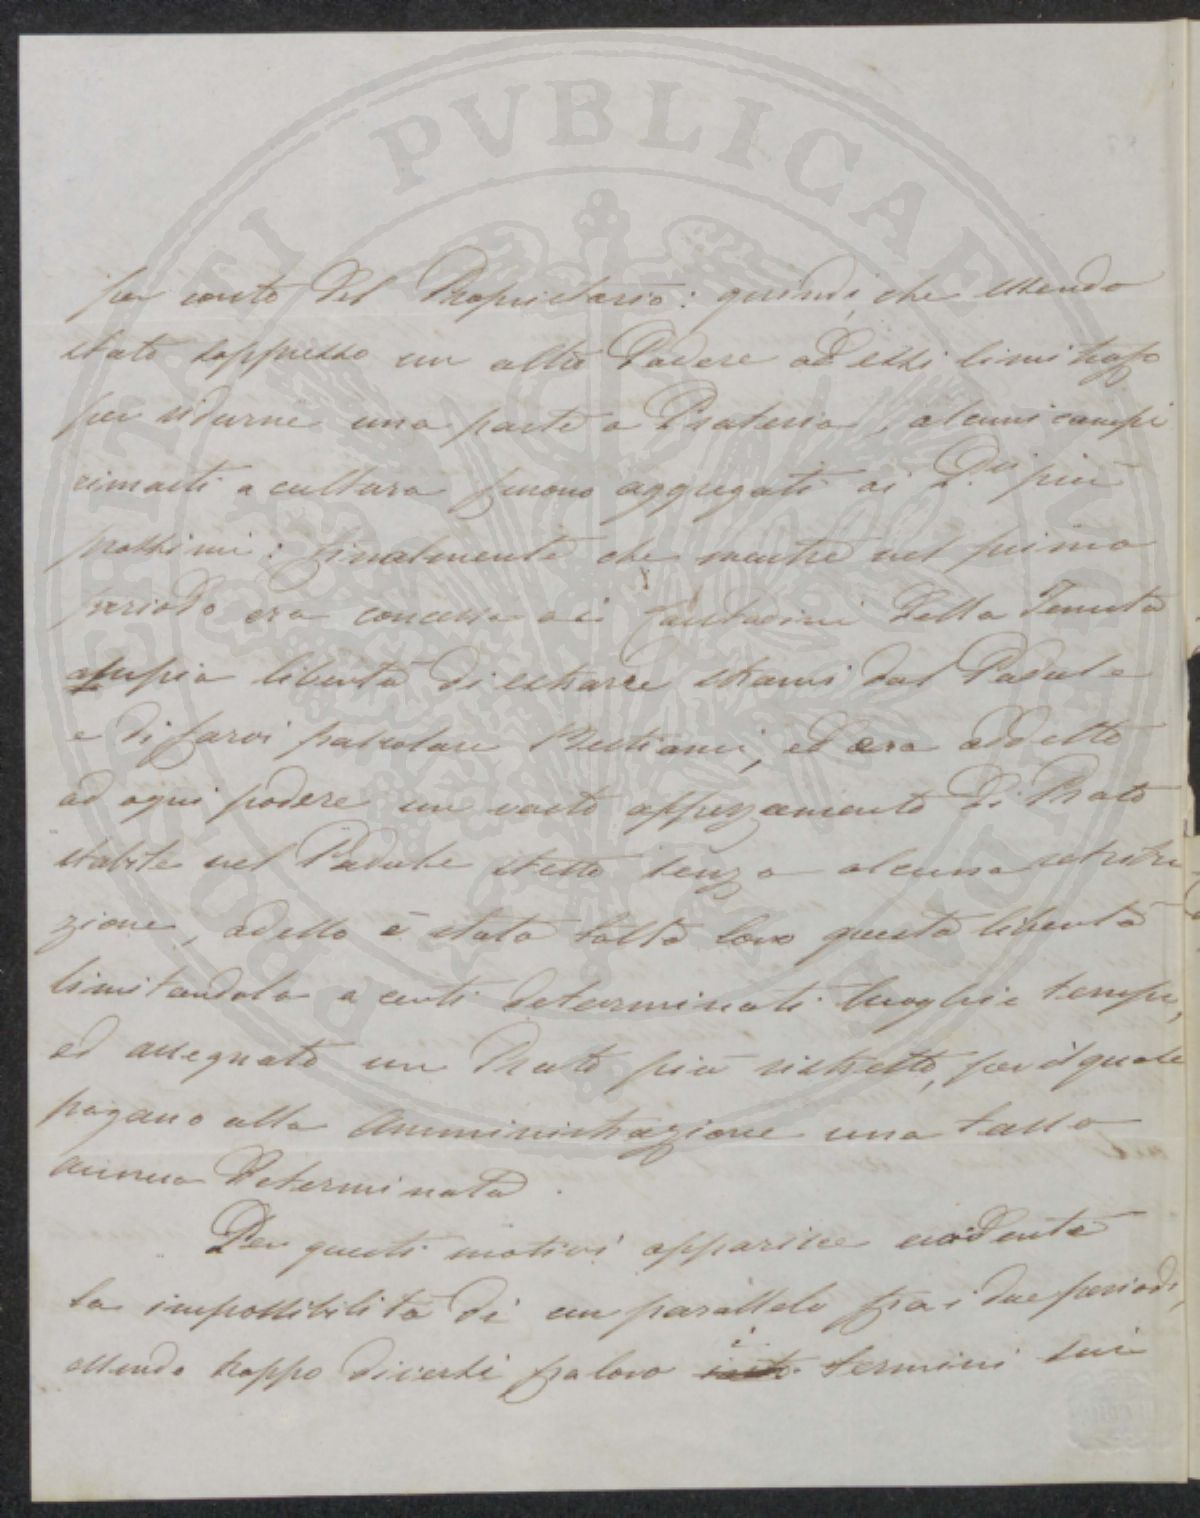 per conto del Proprietario: quindi, che essendo
stato soppresso un altro Podere ad essi limitrofo
per ridurne una parte a Prateria, alcuni campi
rimasti a cultura furono aggregati ai P.ri più
prossimi: finalmente che mentre nel primo
periodo era concessa ai Contadini della Tenuta
ampia libertà di estrarre strami dal Padule
e di farvi pascolare Bestiami, ed era addetto
ad ogni podere un vasto appezzamento di Prato
stabile nel Padule stesso senza alcuna retribu
zione, adesso è stata tolta loro questa libertà
limitandola a certi determinati luoghi e tempi,
ed assegnato un Prato più ristretto, per il quale
pagano alla Amministrazione una tassa
annua determinata.
Per questi motivi apparisce evidente
la impossibilità di un parallelo fra i due periodi,
essendo troppo diversi fra loro i termini sui
PVBLICAE